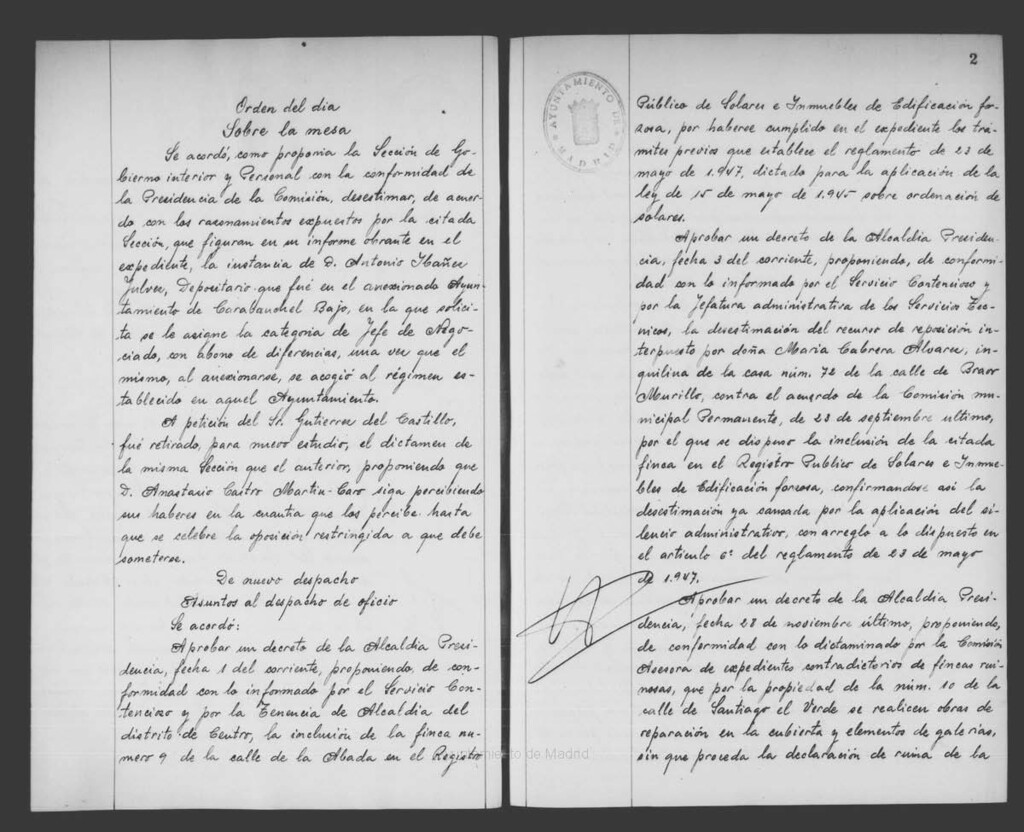 Orden del dia
Sobre la mesa
Se acordó, como proponia la Sección de Go-
bierno interior y Personal con la conformidad de
la Presidencia de la Comisión, desestimar, de acuer-
do con los razonamientos expuestos por la citada
Sección, que figuran en su informe obrante en el
expediente, la instancia de D. Antonio Ibañez
Julvez, Depositario que fué en el anexionado Ayun-
tamiento de Carabanchel Bajo, en la que solici-
ta se le asigne la categoria de Jefe de Nego-
ciado, con abono de diferencias, una vez que el
mismo, al anexionarse, se acogió al régimen es-
tablecido en aquel Ayuntamiento.
A petición del Sr. Gutierrez del Castillo,
fué retirado, para nuevo estudio, el dictamen de
la misma Sección que el anterior, proponiendo que
D. Anastasio Castro Martin-Caro siga percibiendo
sus haberes en la cuantia que los percibe hasta
que se celebre la oposición restringida a que debe
someterse.
De nuevo despacho
Asuntos al despacho de oficio
Se acordó:
Aprobar un decreto de la Alcaldia Presi-
dencia, fecha 1 del corriente, proponiendo, de con-
formidad con lo informado por el Servicio Con-
tencioso y por la Tenencia de Alcaldia del
distrito de Centro, la inclusión de la finca nu-
mero 9 de la calle de la Abada en el Registro
Ayuntamiento de Madrid
2
AYUNTAMIENTO DE
MADRID
Público de Solares e Inmuebles de Edificación for-
zosa, por haberse cumplido en el expediente los trá-
mites previos que establece el reglamento de 23 de
mayo de 1.947, dictado para la aplicación de la
ley de 15 de mayo de 1.945 sobre ordenación de
solares.
Aprobar un decreto de la Alcaldia Presiden-
cia, fecha 3 del corriente, proponiendo, de conformi-
dad con lo informado por el Servicio Contencioso y
por la Jefatura administrativa de los Servicios Téc-
nicos, la desestimación del recurso de reposición in-
terpuesto por doña Maria Cabrera Alvarez, in-
quilina de la casa núm. 72 de la calle de Bravo
Murillo, contra el acuerdo de la Comisión mu-
nicipal Permanente, de 23 de septiembre último,
por el que se dispuso la inclusión de la citada
finca en el Registro Publico de Solares e Inmue-
bles de Edificación forzosa, confirmandose asi la
desestimación ya causada por la aplicación del si-
lencio administrativo, con arreglo a lo dispuesto en
el articulo 6º del reglamento de 23 de mayo
de 1.947.
Aprobar un decreto de la Alcaldia Presi-
dencia, fecha 28 de noviembre último, proponiendo,
de conformidad con lo dictaminado por la Comisión
Asesora de expedientes contradictorios de fincas rui-
nosas, que por la propiedad de la núm. 10 de la
calle de Santiago el Verde se realicen obras de
reparación en la cubierta y elementos de galerias,
sin que proceda la declaración de ruina de la